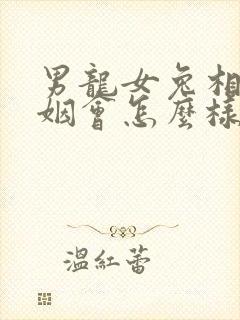 男龍女兔相
姻會怎麼樣
溫紅蕾